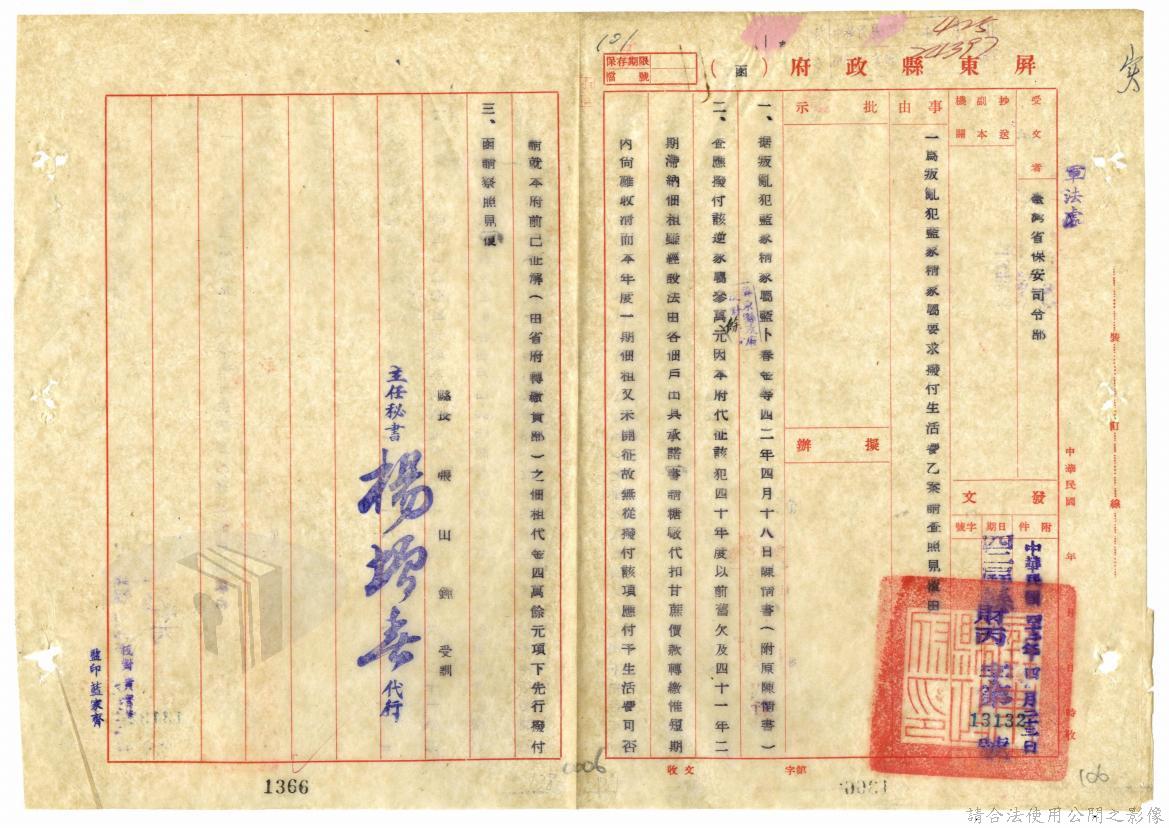 屏東縣政府（函）
保存期限
檔號
101
425
24397
受文者
臺灣省保安司令部
抄送副本機關
事由
一為叛亂犯藍家精家屬要求撥付生活費乙案請查照見復由
批示
擬辦
發文
附件
日期
字號
中華民國四十二年四月二十三日
財丙
13132
號
軍法處
中華民國 年
時收
裝
訂
線
一、据叛亂犯藍家精家屬藍卜春等四二年四月十八日陳情書（附原陳情書）
二、查應撥付該逆家屬參萬元因本府代征該犯四十年度以前舊欠及四十一年二
期滯納佃租雖經敦法田各佃戶出具承諾書請糖廠代扣甘蔗價款轉繳惟短期
內尚難收清而本年度一期佃租又未開征故無從撥付該項應付予生活費可否
請就本府前已征解（由省府轉繳貴部）之佃租代金四萬餘元項下先行撥付
三、函請察照見復
縣長 張山鐘 受訓
主任秘書 楊 春 代行
監印藍家齊
收文
字
號
1366
0006
106
請合法使用公開之影像